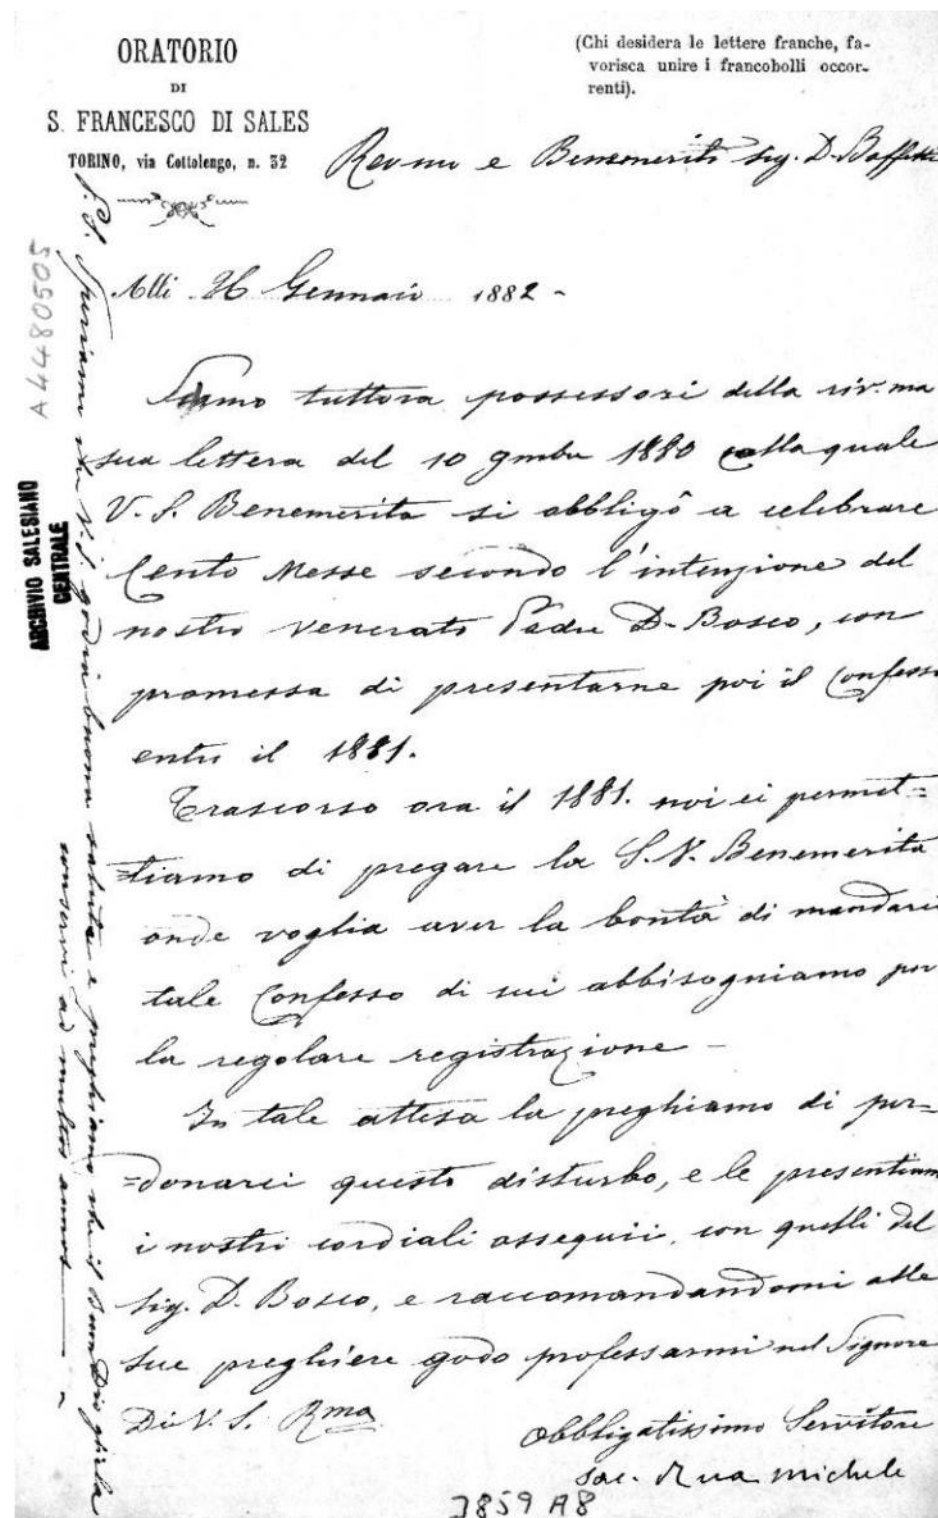 ORATORIO
DI
S. FRANCESCO DI SALES
TORINO, via Cottolengo, n. 32
(Chi desidera le lettere franche, fa-
vorisca unire i francobolli occor-
renti).
Rev.mo e Benemerito Sig. D.
Alli 26 Gennaio 1882 -
Siamo tuttora possessori della riv.ma
sua lettera del 10 9mbre 1880 colla quale
V. S. Benemerita si obbligò a celebrare
Cento Messe secondo l'intenzione del
nostro venerato Padre D. Bosco, con
promessa di presentarne poi il Confesso
entro il 1881.
Trascorso ora il 1881. noi ci permet=
=tiamo di pregare la S. V. Benemerita
onde voglia aver la bontà di mandarci
tale Confesso di cui abbisogniamo per
la regolare registrazione -
In tale attesa la preghiamo di per=
=donarci questo disturbo, e le presentiamo
i nostri cordiali ossequii, con quelli del
Sig. D. Bosco, e raccomandandomi alle
sue preghiere godo professarmi nel Signore
Di V. S. Rma
Obbligatissimo Servitore
Sac. Rua Michele
P. S. Speriamo che V. S. godrà buona salute e preghiamo che il Buon Dio
conservi ad multos annos
A4480505
ARCHIVIO SALESIANO
CENTRALE
3859 A8